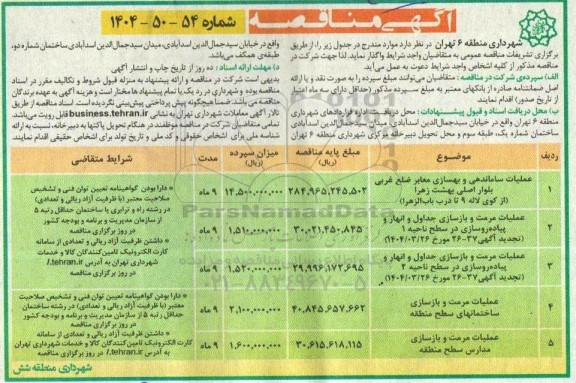 آگهی مناقصه
شماره ۵۴ - ۵۰ - ۱۴۰۴
شهرداری منطقه ۶ تهران در نظر دارد موارد مندرج در جدول زیر را، از طریق
برگزاری تشریفات مناقصه عمومی به متقاضیان واجد شرایط واگذار نماید. لذا جهت شرکت در
مناقصه مذکور از کلیه اشخاص واجد شرایط دعوت به عمل می‌آید.
الف) سپرده‌ی شرکت در مناقصه: متقاضیان می‌توانند مبلغ سپرده را به صورت نقد و یا ارائه
اصل ضمانتنامه صادره از بانکهای معتبر به مبلغ سپرده مذکور (حداقل دارای سه ماه اعتبار
از تاریخ صدور) اقدام نمایند.
ب) محل دریافت اسناد و قبول پیشنهادات: محل دریافت اسناد و قراردادهای شهرداری
منطقه ۶ تهران واقع در خیابان سیدجمال‌الدین اسدآبادی، میدان سیدجمال‌الدین اسدآبادی
ساختمان شماره یک، طبقه سوم و محل تحویل دبیرخانه مرکزی شهرداری منطقه ۶ تهران
واقع در خیابان سیدجمال‌الدین اسدآبادی، میدان سیدجمال‌الدین اسدآبادی ساختمان شماره دو،
طبقه‌ی همکف می‌باشد.
د) مهلت ارائه اسناد: ده روز از تاریخ چاپ و انتشار آگهی
بدیهی است شرکت در مناقصه و ارائه پیشنهاد به منزله قبول شروط و تکالیف مقرر در اسناد
مناقصه بوده و شهرداری در رد یک یا تمام پیشنهادها مختار است و هزینه آگهی به عهده برندگان
مناقصه می‌باشد. ضمنا هیچگونه پیش پرداختی پیش‌بینی نگردیده است. اسناد مناقصه از طریق
تالار آگهی معاملات شهرداری تهران به نشانی business.tehran.ir قابل رویت می‌باشد.
تمامی متقاضیان شرکت در مناقصه موظفند در هنگام تحویل پاکتها به دبیرخانه، نسبت به ارائه
شناسه ملی برای اشخاص حقوقی و کد ملی و تاریخ تولد برای اشخاص حقیقی اقدام نمایند.
ردیف موضوع مبلغ پایه مناقصه (ریال) میزان سپرده (ریال) مدت شرایط متقاضی
۱ عملیات ساماندهی و بهسازی معابر ضلع غربی
بلوار اصلی بهشت زهرا
(از کوی لاله ۹ تا درب باب‌الزهرا)
۲۸۴,۹۶۵,۲۴۵,۵۰۲ ۱۴,۵۰۰,۰۰۰,۰۰۰ ۹ ماه
۲ عملیات مرمت و بازسازی جداول و انهار و
پیاده‌روسازی در سطح ناحیه ۱
(تجدید آگهی ۳۷-۲۶ مورخ ۱۴۰۴/۰۳/۲۶)
۳۰,۰۲۱,۴۵۰,۸۴۵ ۱,۵۱۰,۰۰۰,۰۰۰ ۹ ماه
۳ عملیات مرمت و بازسازی جداول و انهار و
پیاده‌روسازی در سطح ناحیه ۲
(تجدید آگهی ۳۷-۲۶ مورخ ۱۴۰۴/۰۳/۲۶)
۲۹,۹۹۶,۱۷۲,۶۹۵ ۱,۵۲۰,۰۰۰,۰۰۰ ۹ ماه
* دارا بودن گواهینامه تعیین توان فنی و تشخیص
صلاحیت معتبر (با ظرفیت آزاد ریالی و تعدادی)
در رشته راه و ترابری یا ساختمان حداقل رتبه ۵
از سازمان مدیریت و برنامه و بودجه کشور
در روز برگزاری مناقصه
* داشتن ظرفیت آزاد ریالی و تعدادی از سامانه
کارت الکترونیک تامین‌کنندگان کالا و خدمات
شهرداری تهران به آدرس tehran.ir./
در روز برگزاری مناقصه
۴ عملیات مرمت و بازسازی
ساختمانهای سطح منطقه
۴۰,۸۴۵,۶۵۷,۶۶۲ ۲,۱۰۰,۰۰۰,۰۰۰ ۹ ماه
۵ عملیات مرمت و بازسازی
مدارس سطح منطقه
۳۰,۶۱۵,۶۱۸,۱۱۵ ۱,۶۰۰,۰۰۰,۰۰۰ ۹ ماه
* دارا بودن گواهینامه تعیین توان فنی و تشخیص صلاحیت
معتبر (با ظرفیت آزاد ریالی و تعدادی) در رشته ساختمان
حداقل رتبه ۵ از سازمان مدیریت و برنامه و بودجه کشور
در روز برگزاری مناقصه
* داشتن ظرفیت آزاد ریالی و تعدادی از سامانه
کارت الکترونیک تامین‌کنندگان کالا و خدمات شهرداری تهران
به آدرس tehran.ir./ در روز برگزاری مناقصه
شهرداری منطقه شش
ParsNamadData
۰۲۱-۸۸۳۴۹۶۷۰-۵